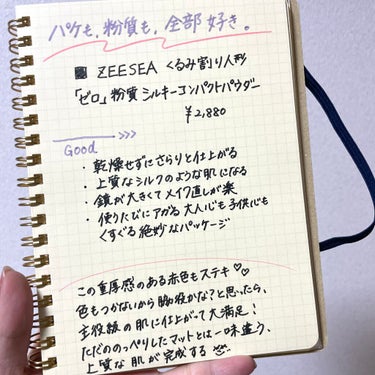 パケも、粉質も、全部好き。
■ ZEESEA くるみ割り人形
「ゼロ」粉質シルキーコンパクトパウダー
¥2,880
Good >>>
・乾燥せずにさらりと仕上がる
・上質なシルクのような肌になる
・鏡が大きくてメイク直しが楽
・使うたびにアガる大人心も子供心も
くすぐる絶妙なパッケージ
この重厚感のある赤色もステキ♡♡
色もつかないから脇役かな?と思ったら、
主役級の肌に仕上がって大満足!
ただののっぺりしたマットとは一味違う、
上質な肌が完成する